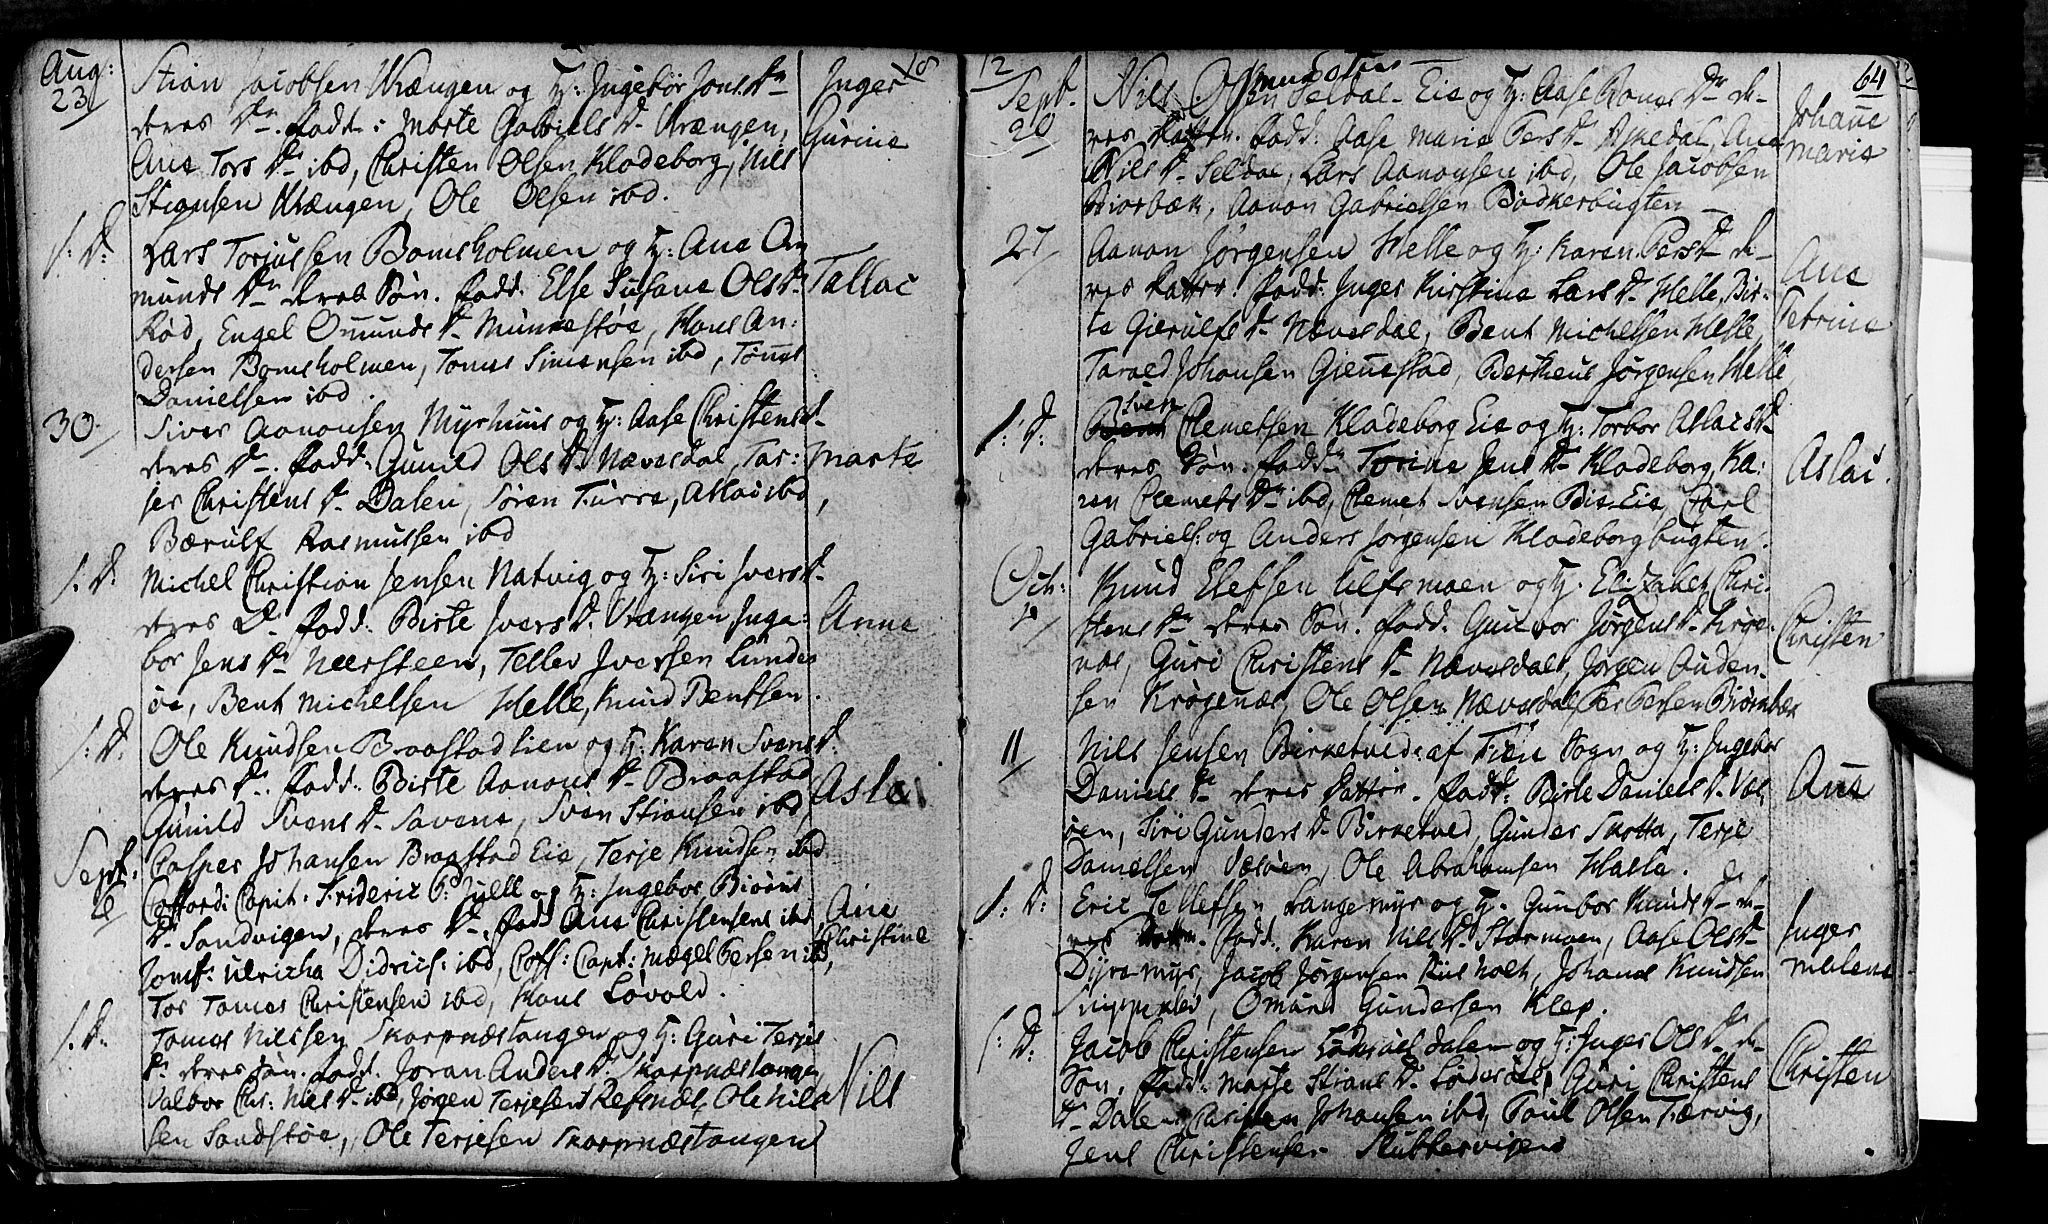 Aug:
23
Stian Jacobsen Vrængen og H: Ingebor Jons Dr
deres Dr. fadd: Marte Gabriels Dr Vrængen,
Ane Tors Dr ibd, Christen Olsen Kladeborg, Nils
Stiansen Vrængen, Ole Olsen ibd.
Inger
Gurine
18
S: D:
Lars Torjussen Bomsholmen og H: Ane Am
munds Dr deres Søn. fadd: Else Susane Ols Dr
Rød, Engel Omunds Dr Munkestøe, Hans An:
dersen Bomsholmen, Tomes Simensen ibd, Tønnes
Danielsen ibd.
Tallac
30
Siver Aanonsen Myrhuus og H: Aase Christens Dr
deres Dr. fadd: Gunild Ols Dr Nævesdal, Tar:
jer Christens Dr Dalen, Søren Turre, Aslac ibd,
Bærulf Rasmussen ibd
Marte
S: D:
Michel Christian Jensen Natvig og H: Siri Ivers Dr
deres D. fadd: Birte Ivers Dr Vrængen, Inge:
bor Jens Dr Neersteen, Tellev Iversen Lunde
øe, Bent Michelsen Helle, Knud Bentsen.
Anne
S: D:
Ole Knudsen Braastad lien og H: Karen Svens Dr:
deres Dr. fadd: Birte Aanons Dr Braastad
Gunild Svens Dr Savene, Sven Stiansen ibd,
Casper Johansen Braastad Eie, Terje Knudsen ibd
Asle
Sept:
6
Cofferdi Capit: Frideric P: Juell og H: Ingebor Biørns
Dr Sandvigen, deres Dr. fadd Ane Christensens ibd
Jomf: Ulricha Didrics: ibd, Coff: Capt: Mægel Persen ibd,
Tor Tomas Christensen ibd, Hans Løvold.
Ane
Christine
S: D:
Tomas Nilssen Skarpnæstangen og H: Guri Terjes
Dr deres Søn. fadd. Joran Anders Dr Skarpnæstangen
Salbor Chr: Nils Dr ibd, Jørgen Terjesen Refsnæs, Ole Nils
sen Sandstøe, Ole Terjesen Skarpnæstangen
Nils
12
64
Sept.
20
Nils Olsen Seldal Eie og H: Aase Aanons Dr de-
res Datter. fadd: Aase Marie Pers Dr Askedal, Ane
Nils Dr Seldal, Lars Aanonsen ibd, Ole Jacobsen
Biorbæk, Aanon Gabrielsen Bødkerbugten
Johanne
Marie
27
Aanon Jørgensen Helle og H: Karen Pers Dr de-
res Datter. fadd: Inger Kirstine Lars Dr Helle, Bir-
te Gierulfs Dr Nævesdal, Bent Michelsen Helle
Taraed Johansen Gjennestad, Bertheus Jørgensen Helle,
Ane
Petrine
S: D:
Sven
Clemetsen Kladeborg Eie og H: Torbor Aslacs Dr
deres Søn. fadd: Torine Jens Dr Kladeborg, Ka:
ren Clemets Dr ibd, Clemet Svensen Bie Eie, Carl
Gabriels: og Anders Jørgensen Kladeborgbugten.
Aslac
Oct:
Knud Elefsen Ulfsmoen og H. Elizabet Chri-
stens Dr deres Søn. fadd: Gunvor Jørgens Dr Krøge-
næs, Guri Christens Dr Nævesdal, Jørgen Auden-
sen Krøgenæs, Ole Olsen Nævesdal, Per Persen Biørnbæk
Christen
11
Nils Jensen Birketved af Sogn og H: Ingebor
Daniels Dr deres Datter. fadd: Birte Daniels Dr Væs
øen, Siri Gunders Dr Birketved, Gunder Skotta, Terje
Danielsen Væsøen, Ole Abrahamsen Halle.
Ane
S: D:
Eric Tellefsen Langemyr og H. Gunbor Knuds Dr de-
res Datter. fadd: Karen Nils Dr Stormoen, Aase Ols Dr
Dyremyr, Jacob Jørgensen Riis Holt, Johanes Knudsen
Omund Gundersen Klep.
Inger
Malene
S: D:
Jacob Christensen Lødesøels dalen og H: Inger Ols Dr de-
Søn, fadd: Marte Stians Dr Lødesøel, Guri Christens
Dr Dalen, Christen Johansen ibd, Poul Olsen Færvig,
Jens Christensen Stubbervigen
Christen